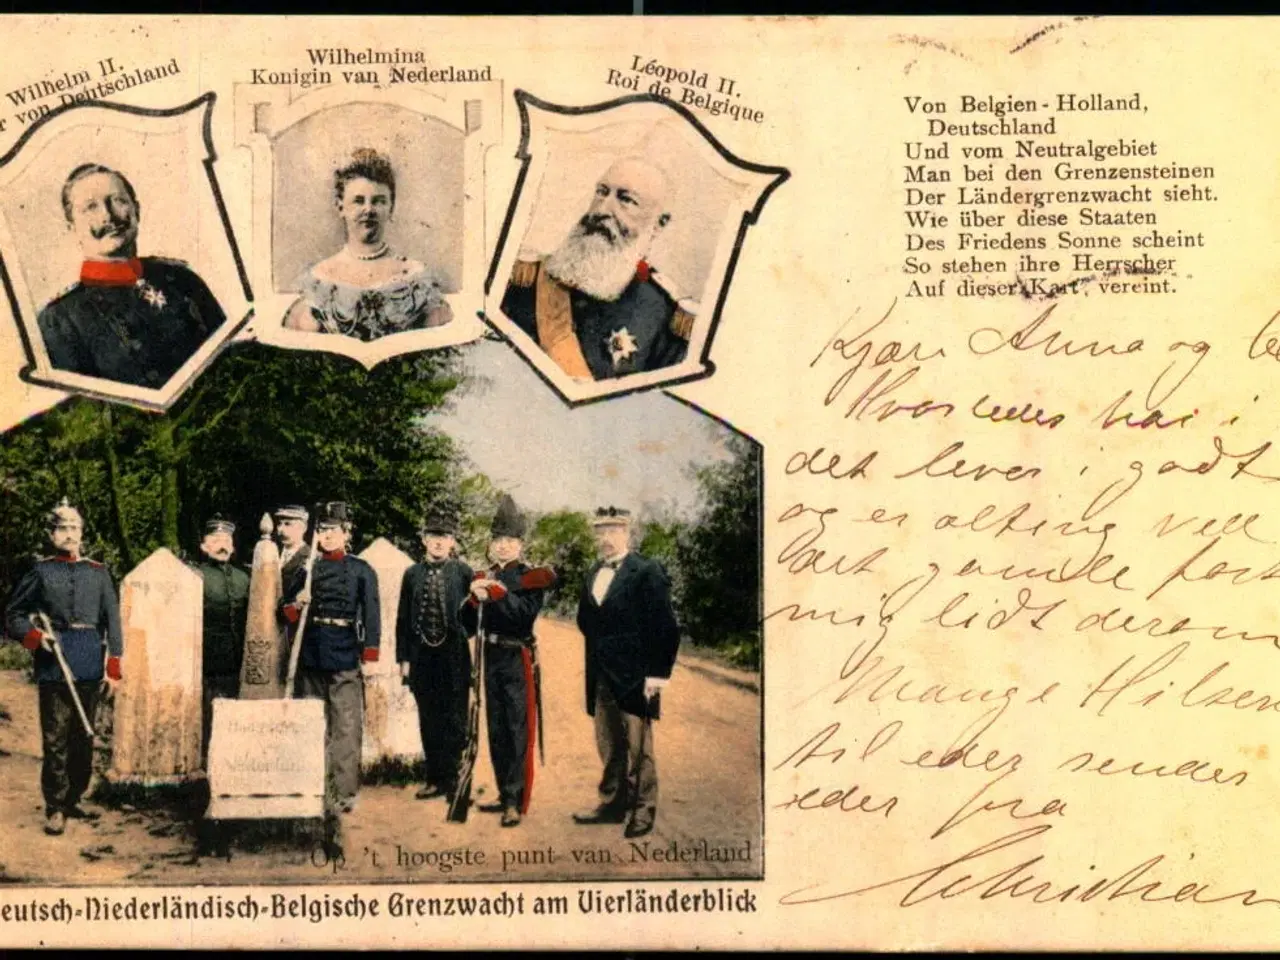 Wilhelm II.
von Deutschland
Wilhelmina
Konigin van Nederland
Léopold II.
Roi de Belgique
Von Belgien - Holland,
Deutschland
Und vom Neutralgebiet
Man bei den Grenzensteinen
Der Ländergrenzwacht sieht.
Wie über diese Staaten
Des Friedens Sonne scheint
So stehen ihre Herrscher
Auf dieser Kart' vereint.
Kjære Anna og
Hvorledes har i
det lever i godt
og er alting vell
gamle
mig lidt derom
Mange Hilsen
til eder sendes
eder fra
Christian
Op 't hoogste punt van Nederland
eutsch-Niederländisch-Belgische Grenzwacht am Vierländerblick